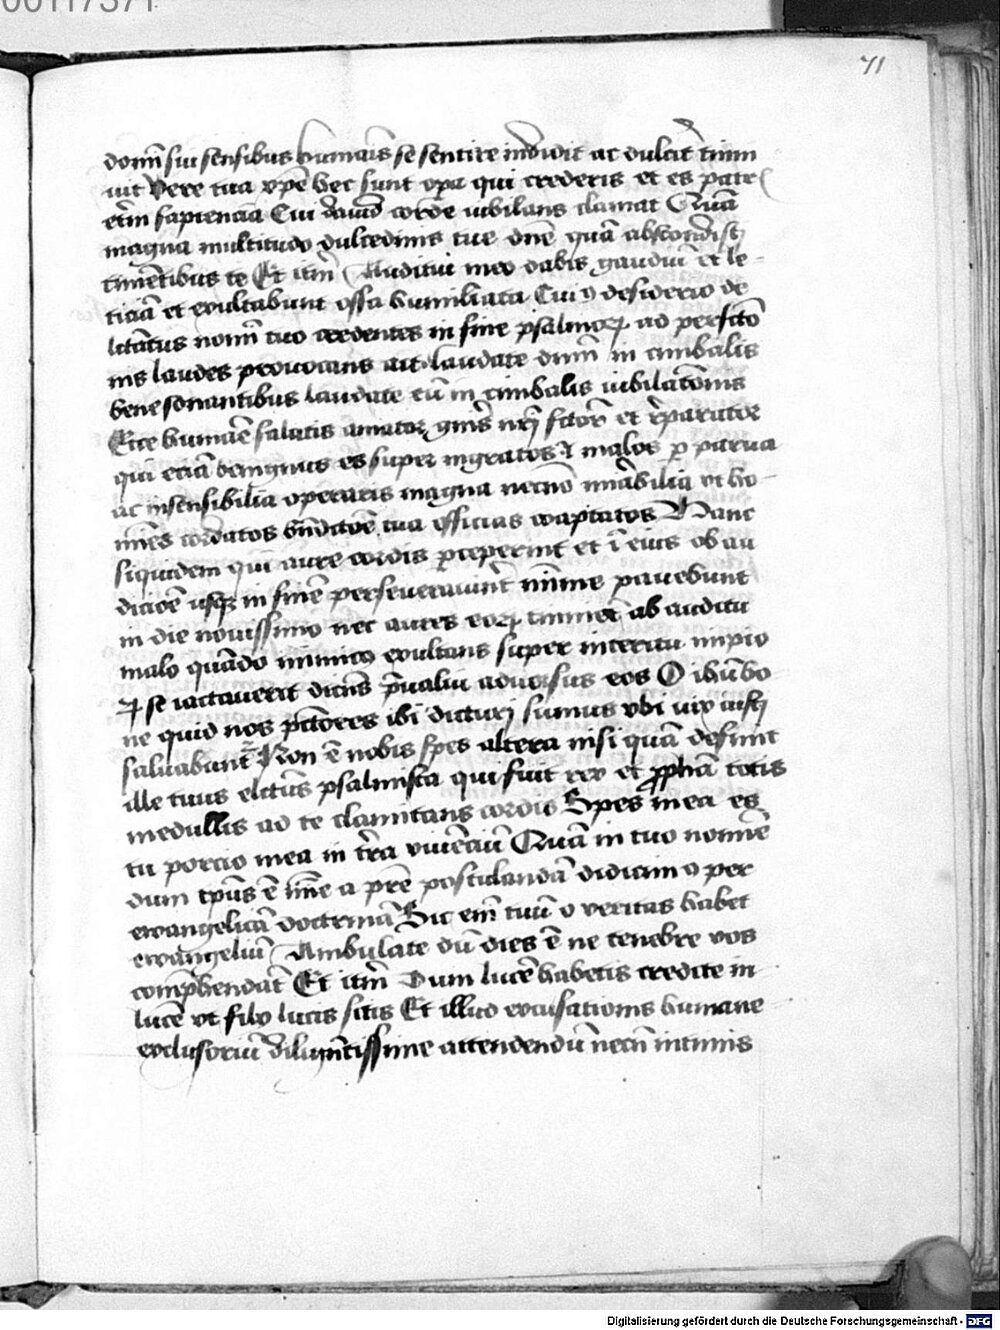 00117371
71
domī sui sensibus humanis se sentire īdidit ac dulcit̄
uit Vere tua xpē hec sunt opa qui crederis et es patris
etm̄ sapiencia Cui dauid corde iubilans clamat Quā
magna multitudo dulcedinis tue dnē quā abscondisti
timētibus te Et itm̄ Auditui meo dabis gaudiū et le-
ticiā et exultabunt ossa humiliata Cui9 desiderio de
nomī tuo credentes in fine psalmoꝝ ad
nis laudes prouocans ait laudate dnm̄ in cimbalis
bene sonantibus laudate eū in cimbalis iubilatōnis
Ecce humāe salutis amator gn̄is nr̄i et reparator
qui eciā benignus es super ingratos et malos ꝑ parua
ac insensibilia operaris magna necnō mirabilia vt ho-
mīes tua efficias coaptatos Hanc
siquidem qui aure cordis ꝑceperint et ī eius ob au
dicōe usqꝫ in finē perseuerauint̄ mīme pauebunt
in die nouissimo nec aures eoꝝ ab auditu
malo quādo inimic9 exultans super interitu impio
ꝝ se iactauerit dicēs p̄ualui aduersus eos O ihū bo
ne quid nos pctōres ibi dicturi sumus vbi vix iusti
saluabunt̄ Non ē nobis spes altera nisi quā
ille tuus psalmista qui fuit rex et ꝓphā totis
medullis ad te clamitans cordis Spes mea es
tu porcio mea in tr̄a viuēciū Quā in tuo nomīe
dum tp̄us ē a pr̄e postulandā didicim9 per
ewangelicā doctrinā Sic em̄ tuū o veritas habet
ewangeliū Ambulate dū dies ē ne tenebre vos
comp̄hendāt Et itm̄ Dum lucē habetis credite in
lucē vt filij lucis sitis Et illud excusationis humane
exclusoriū diligētissime attendendū necn̄ intimis
Digitalisierung gefördert durch die Deutsche Forschungsgemeinschaft - DFG